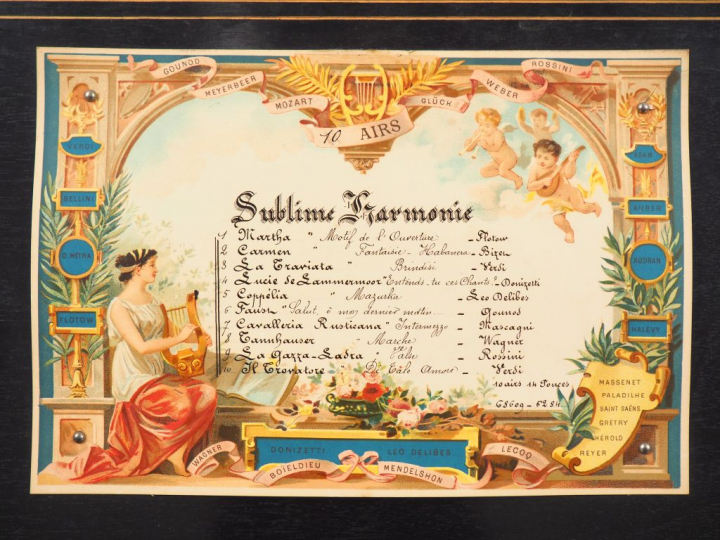 GOUNOD
MEYERBEER
MOZART
GLÜCK
WEBER
ROSSINI
10 AIRS
VERDI
BELLINI
O. MÉTRA
FLOTOW
ADAM
AUBER
AUDRAN
HALEVY
Sublime Harmonie
1 Martha " Motif de l'Ouverture – Flotow
2 Carmen " Fantaisie - Habanera – Bizet
3 La Traviata " Brindisi – Verdi
4 Lucie de Lammermoor "Entends-tu ces Chants" – Donizetti
5 Coppélia " Mazurka – Leo Delibes
6 Faust "Salut, ô mon dernier matin – Gounod
7 Cavalleria Rusticana " Intermezzo – Mascagni
8 Tannhauser " Marche – Wagner
9 La Gazza-Ladra " Valse – Rossini
10 Il Trovatore " Amore – Verdi
10 airs 14 Pouces
68609 – 5284
MASSENET
PALADILHE
SAINT SAËNS
GRETRY
HÉROLD
REYER
WAGNER
DONIZETTI
LEO DELIBES
BOIELDIEU
MENDELSHON
LECOQ